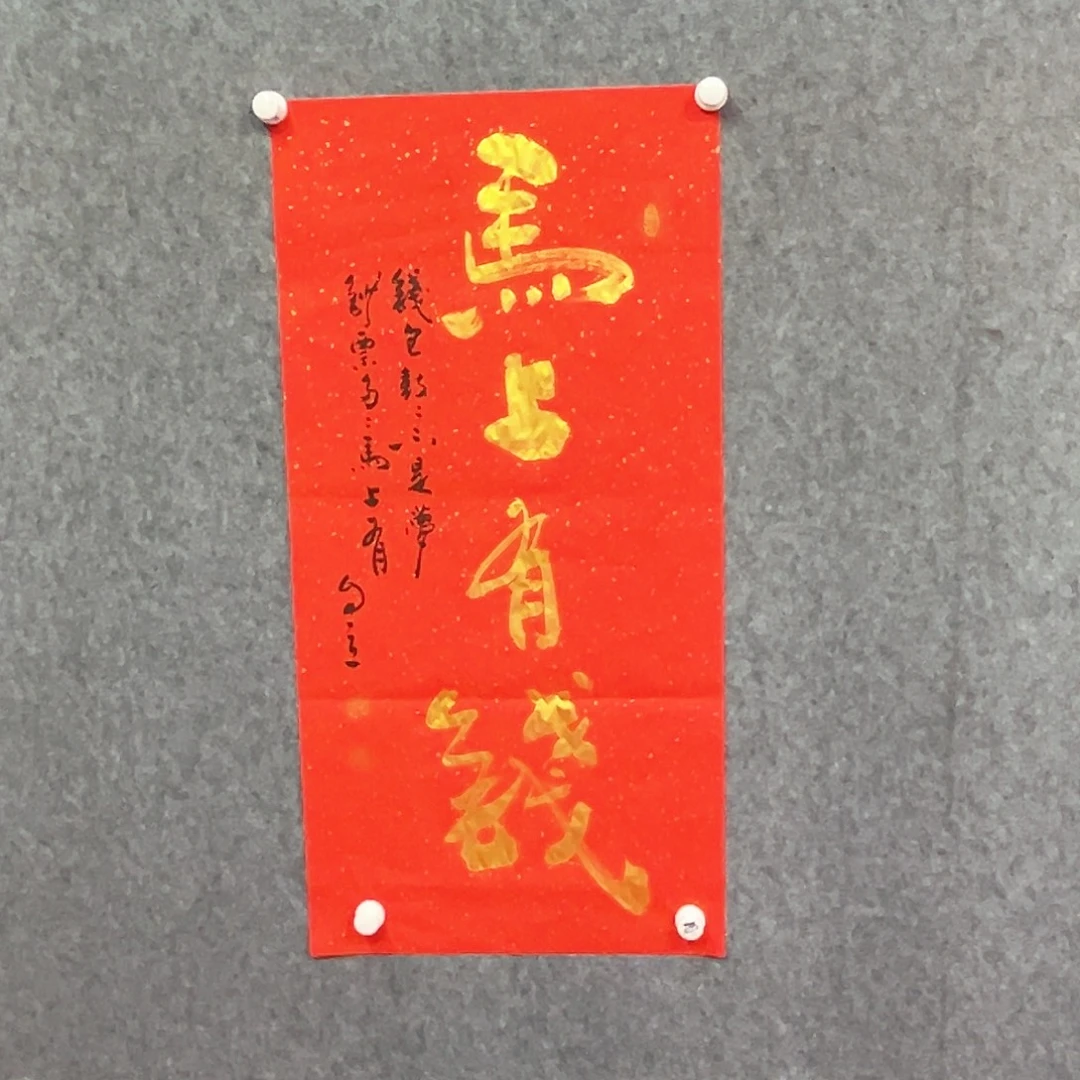 馬上有錢
錢包鼓:不是夢
鈔票多:馬上有